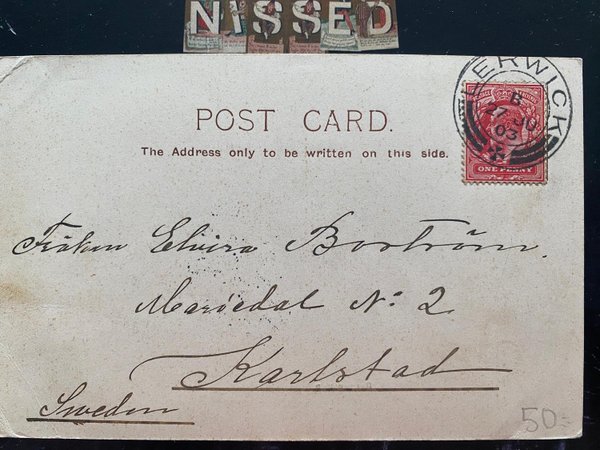 NISSED
POST CARD.
The Address only to be written on this side.
LERWICK
B
27 JU
03
ONE PENNY
Fröken Elvira Boström.
Mariedal No: 2
Karlstad
Sweden
50:-